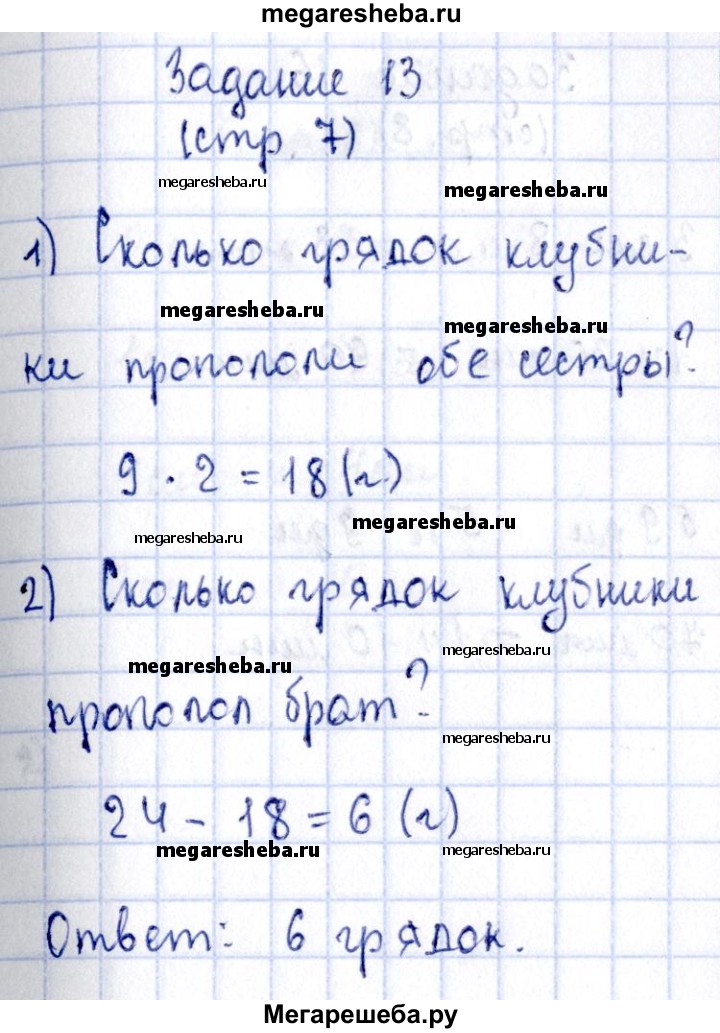 megaresheba.ru
Задание 13
(стр. 7)
megaresheba.ru
megaresheba.ru
1) Сколько грядок клубни-
megaresheba.ru
megaresheba.ru
ки пропололи обе сестры?
9 · 2 = 18 (г.)
megaresheba.ru
megaresheba.ru
2) Сколько грядок клубники
megaresheba.ru
megaresheba.ru
прополол брат?
megaresheba.ru
24 - 18 = 6 (г)
megaresheba.ru
megaresheba.ru
Ответ: 6 грядок.
Мегарешеба.ру